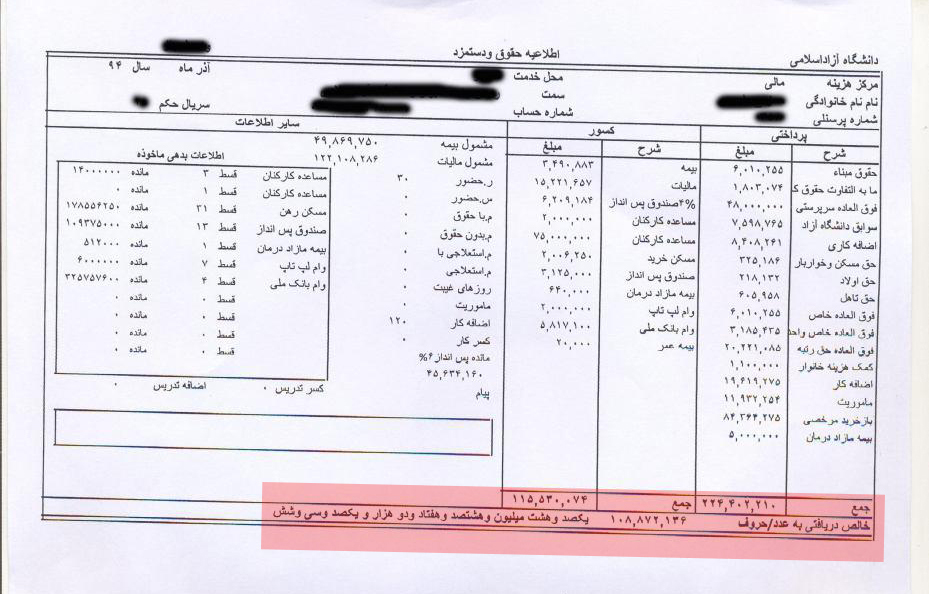 اطلاعیه حقوق ودستمزد
دانشگاه آزاداسلامی
مرکز هزینه مالی
محل خدمت
آذر ماه سال ۹۴
نام نام خانوادگی
سمت
شماره پرسنلی
شماره حساب
سریال حکم
پرداختی
شرح مبلغ
حقوق مبناء ۶,۰۱۰,۲۵۵
ما به التفاوت حقوق ک ۱,۸۰۳,۰۷۴
فوق العاده سرپرستی ۴۸,۰۰۰,۰۰۰
سوابق دانشگاه آزاد ۷,۵۹۸,۷۶۵
اضافه کاری ۸,۴۰۸,۲۶۱
حق مسکن وخواربار ۳۲۵,۱۸۶
حق اولاد ۲۱۸,۱۳۲
حق تاهل ۶۰۵,۹۵۸
فوق العاده خاص ۶,۰۱۰,۲۵۵
فوق العاده خاص واحد ۳,۱۸۵,۴۳۵
فوق العاده حق رتبه ۲۰,۲۲۱,۰۸۵
کمک هزینه خانوار ۱,۱۰۰,۰۰۰
اضافه کار ۱۹,۶۱۹,۲۷۵
ماموریت ۱۱,۹۳۲,۲۵۴
بازخرید مرخصی ۸۴,۳۶۴,۲۷۵
بیمه مازاد درمان ۵,۰۰۰,۰۰۰
کسور
شرح مبلغ
بیمه ۳,۴۹۰,۸۸۳
مالیات ۱۵,۲۲۱,۶۵۷
۴%صندوق پس انداز ۶,۲۰۹,۱۸۴
مساعده کارکنان ۲,۰۰۰,۰۰۰
مساعده کارکنان ۷۵,۰۰۰,۰۰۰
مسکن خرید ۲,۰۰۶,۲۵۰
صندوق پس انداز ۳,۱۲۵,۰۰۰
بیمه مازاد درمان ۶۴۰,۰۰۰
وام لپ تاپ ۲,۰۰۰,۰۰۰
وام بانک ملی ۵,۸۱۷,۱۰۰
بیمه عمر ۲۰,۰۰۰
سایر اطلاعات
مشمول بیمه ۴۹,۸۶۹,۷۵۰
مشمول مالیات ۱۲۲,۱۰۸,۲۸۶
ر.حضور ۳۰
س.حضور ۰
م.با حقوق ۰
م.بدون حقوق ۰
م.استعلاجی با ۰
م.استعلاجی ۰
روزهای غیبت ۰
ماموریت ۰
اضافه کار ۱۲۰
کسر کار ۰
مانده پس انداز ۶%
۴۵,۶۳۴,۱۶۰
پیام
اطلاعات بدهی ماخوذه
مساعده کارکنان قسط ۳ مانده ۱۴۰۰۰۰۰۰
مساعده کارکنان قسط ۱ مانده ۰
مسکن رهن قسط ۳۱ مانده ۱۷۸۵۵۶۲۵۰
صندوق پس انداز قسط ۱۳ مانده ۱۰۹۳۷۵۰۰۰
بیمه مازاد درمان قسط ۱ مانده ۵۱۲۰۰۰
وام لپ تاپ قسط ۷ مانده ۶۰۰۰۰۰۰
وام بانک ملی قسط ۴ مانده ۳۲۵۷۵۷۶۰۰
قسط ۰ مانده ۰
قسط ۰ مانده ۰
قسط ۰ مانده ۰
کسر تدریس ۰ اضافه تدریس ۰
جمع ۲۲۴,۴۰۲,۲۱۰ جمع ۱۱۵,۵۳۰,۰۷۴
خالص دریافتی به عدد/حروف ۱۰۸,۸۷۲,۱۳۶ یکصد وهشت میلیون وهشتصد وهفتاد ودو هزار و یکصد وسی وشش